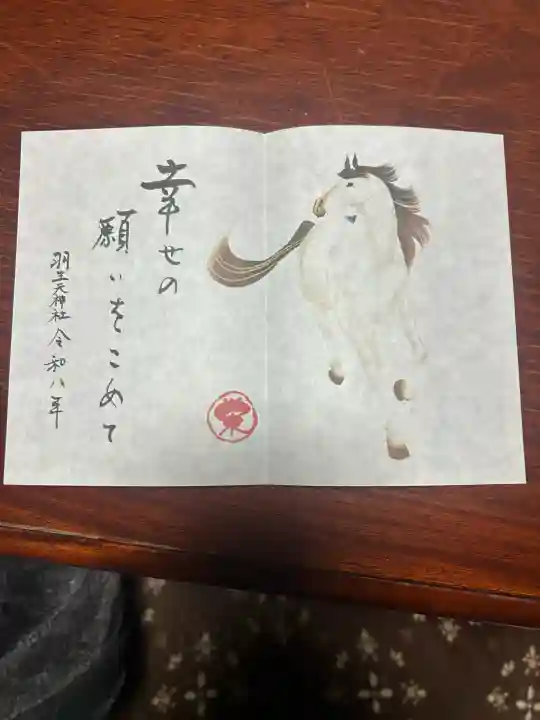 幸せの
願いをこめて
羽生天神社 令和八年
栄